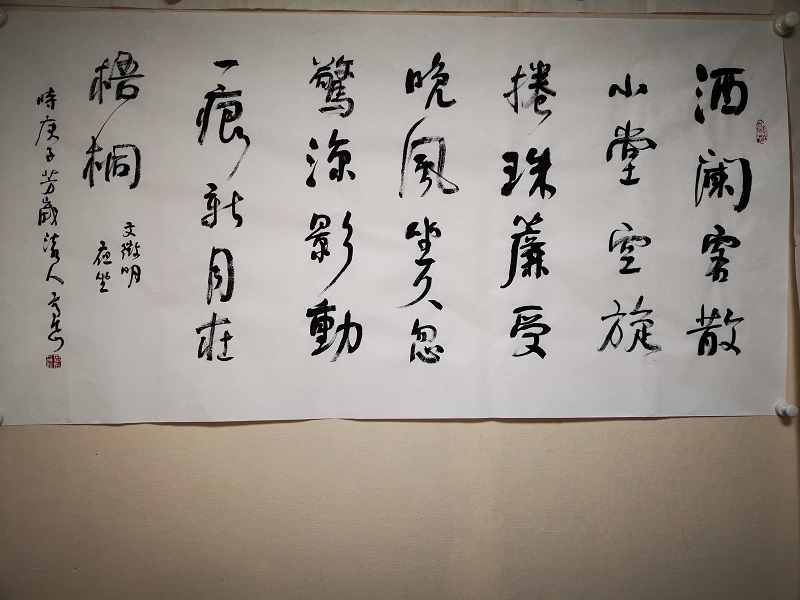 酒阑客散
小堂空旋
捲珠簾受
晚風坐久忽
驚涼影動
一痕新月在
梧桐
文徵明
夜坐
時庚子芳歲